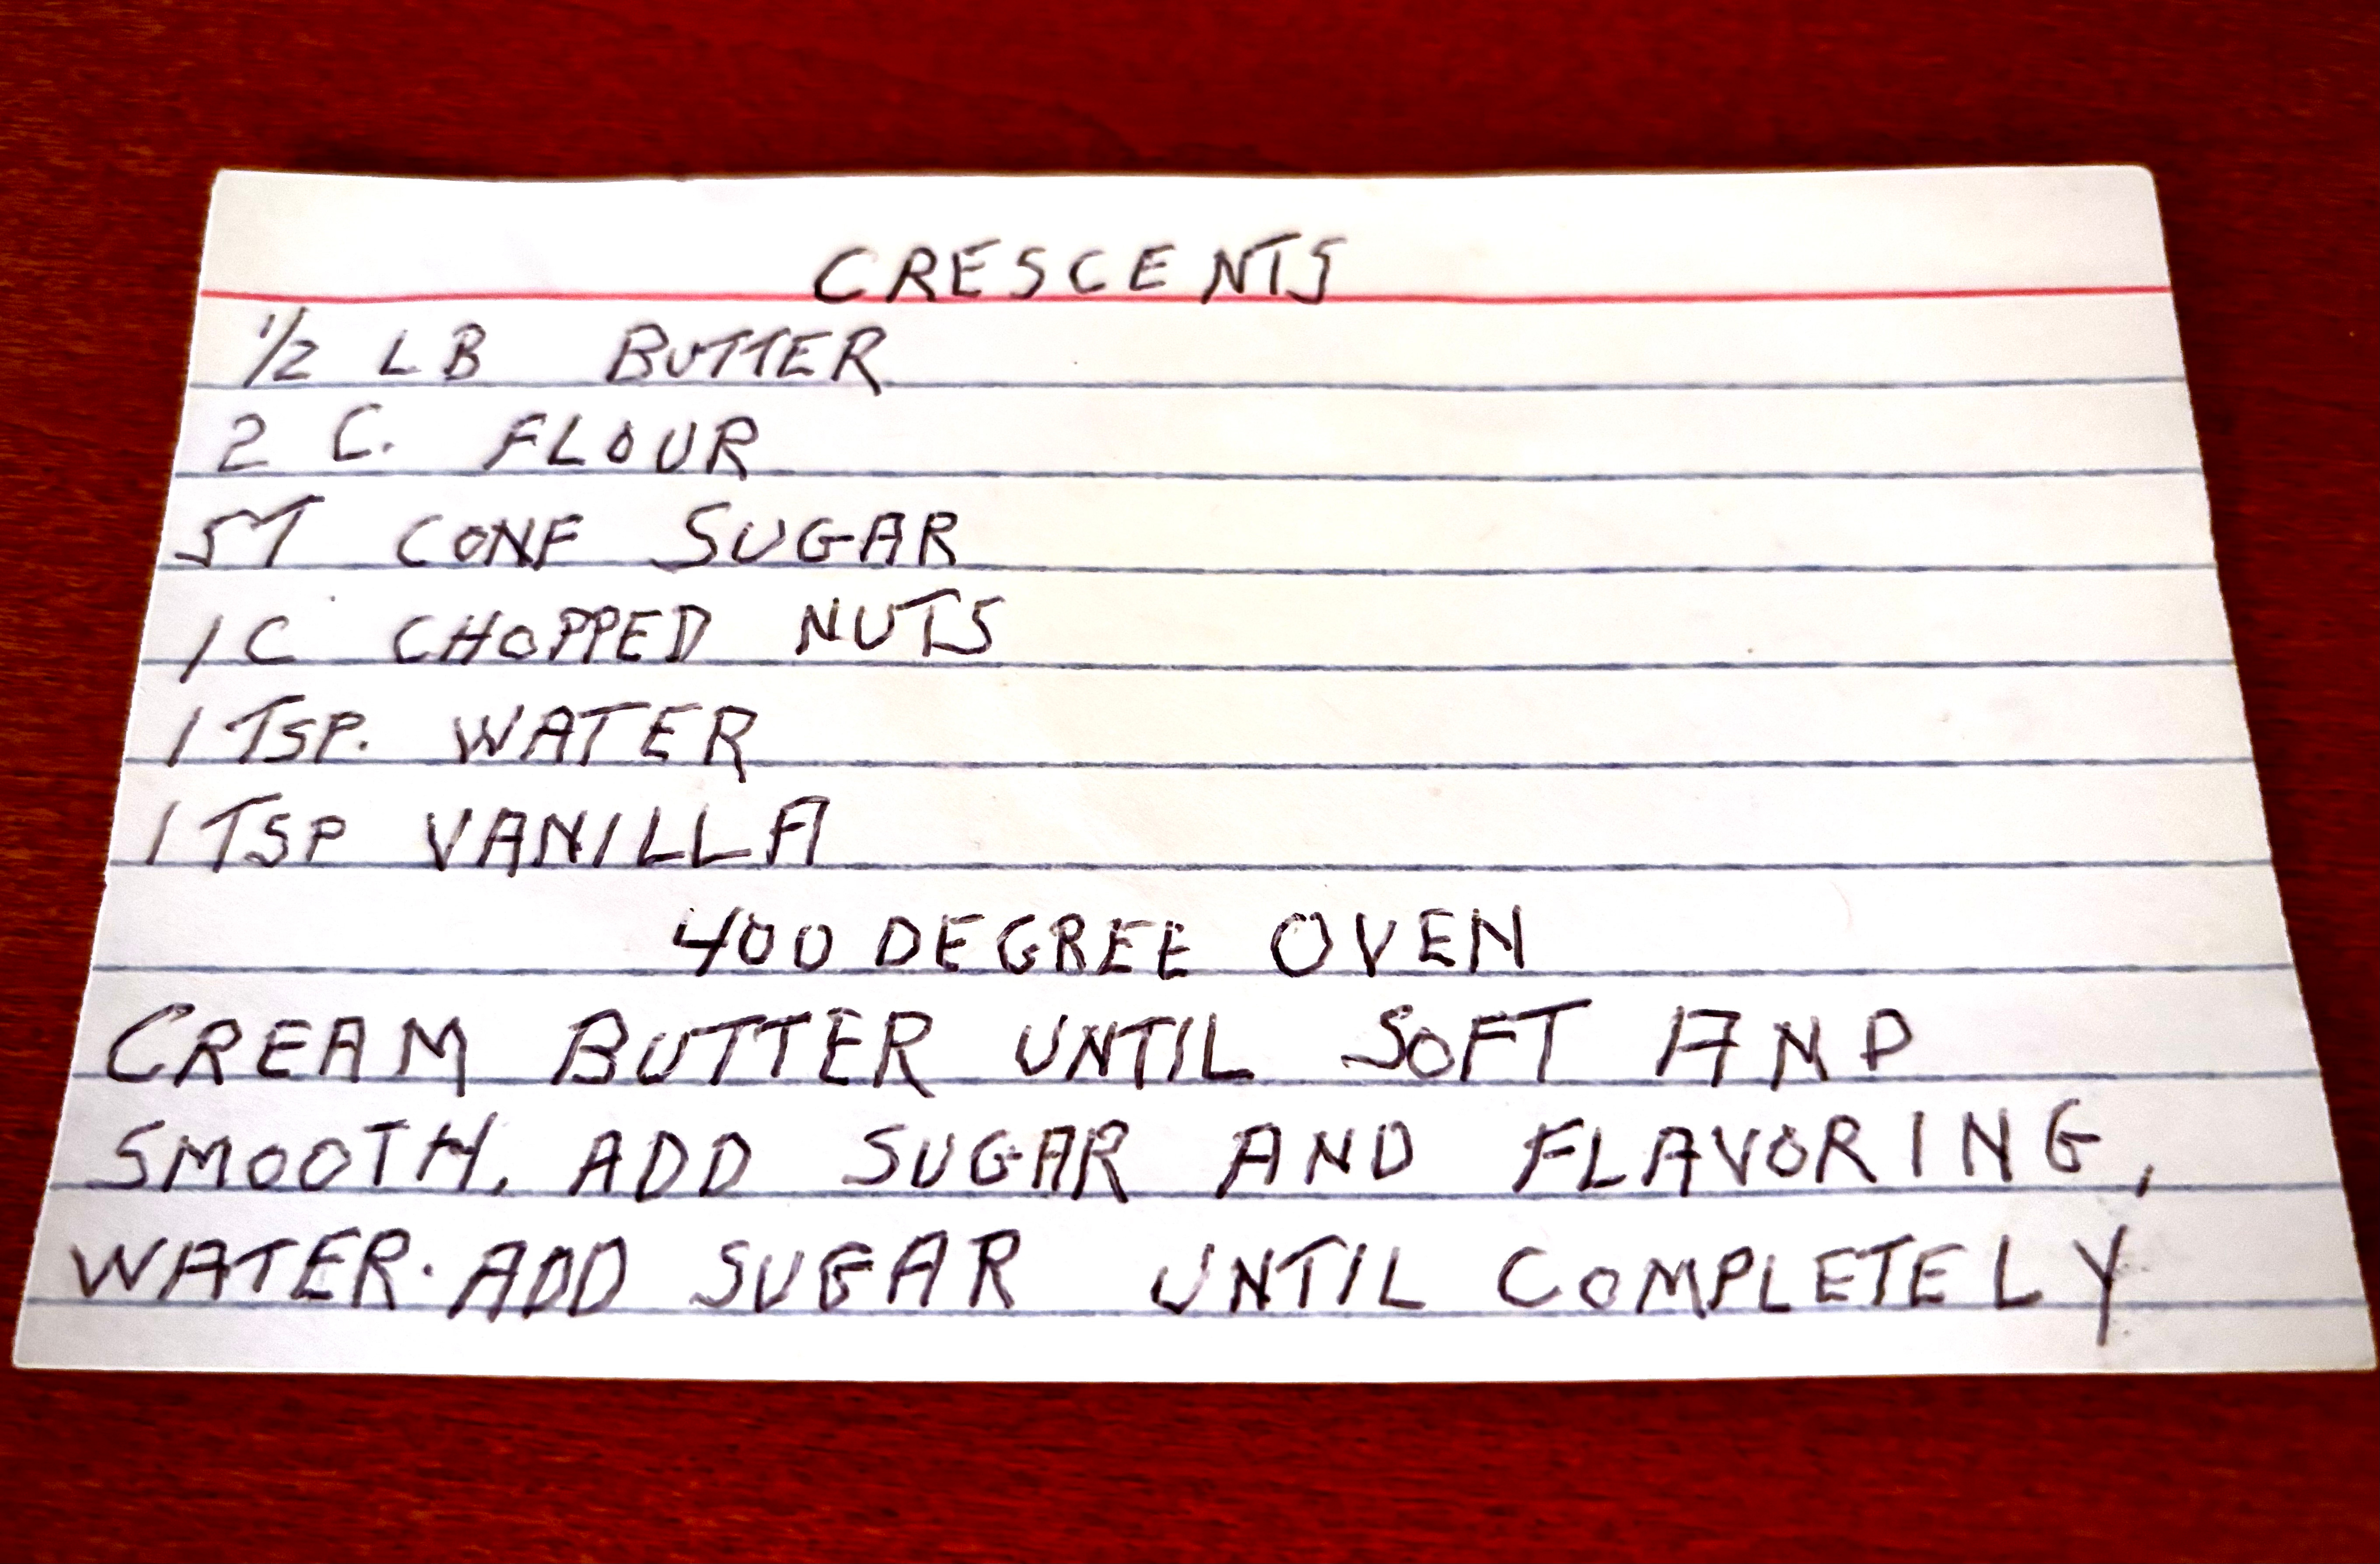 CRESCENTS
1/2 LB BUTTER
2 C. FLOUR
5T CONF SUGAR
1C CHOPPED NUTS
1 TSP. WATER
1 TSP VANILLA
400 DEGREE OVEN
CREAM BUTTER UNTIL SOFT AND
SMOOTH. ADD SUGAR AND FLAVORING,
WATER. ADD SUGAR UNTIL COMPLETELY